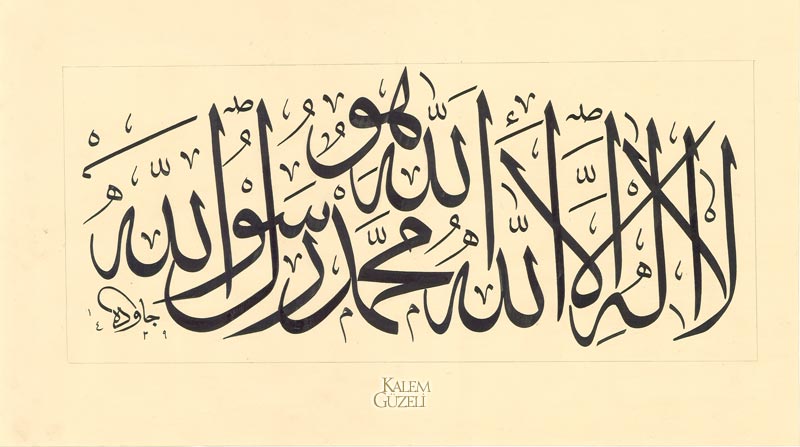 لا اله الا الله الله هو محمد رسول الله
١٤٣٩
KALEM
GÜZELİ